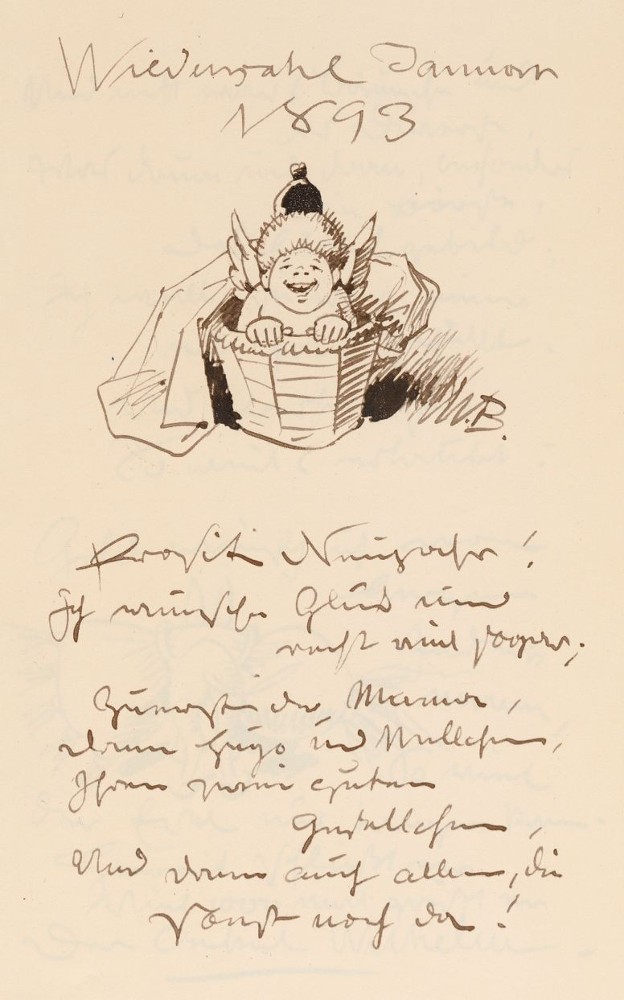 Wiedensahl Januar
1893
W.B.
Prosit Neujahr!
Ich wünsche Glück und
recht viel sogar;
Zuerst der Mama,
dann Hugo und
Ihren zwei guten
Gesellchen,
Und dann auch allen, die
sonst noch da!